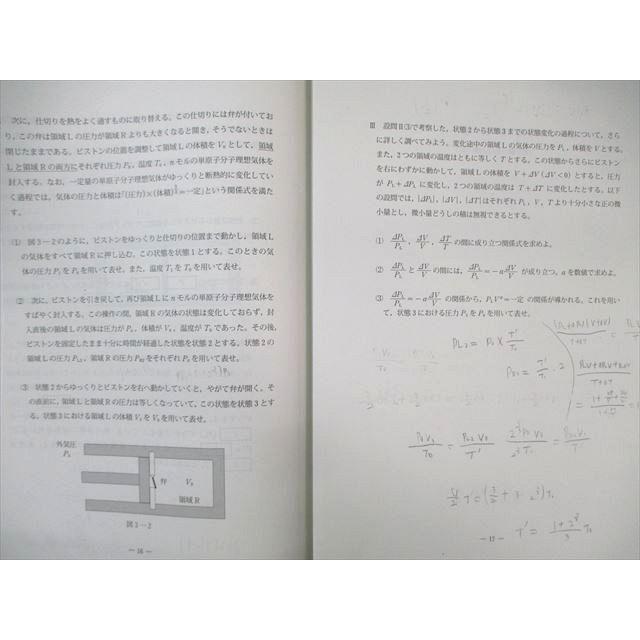 次に，仕切りを熱をよく通すものに取り替える。この仕切りには弁が付いてお
り，この弁は領域Lの圧力が領域Rよりも大きくなると開き，そうでないときは
閉じたままである。ピストンの位置を調整して領域Lの体積をV₀として，領域
Lと領域Rの両方にそれぞれ圧力P₀，温度T₀，nモルの単原子分子理想気体を
封入する。なお，一定量の単原子分子理想気体がゆっくりと断熱的に変化してい
く過程では，気体の圧力と体積は「(圧力)×(体積)^{5/3}＝一定」という関係式を満た
す。
(1) 図3－2のように，ピストンをゆっくりと仕切りの位置まで動かし，領域L
の気体をすべて領域Rに押し込む。この状態を状態1とする。このときの気
体の圧力P₁をP₀を用いて表せ。また，温度T₁をT₀を用いて表せ。
(2) 次に，ピストンを引き戻して，再び領域Lにnモルの単原子分子理想気体を
すばやく封入する。この操作の間，領域Rの気体の状態は変化しておらず，封
入直後の領域Lの気体は圧力がP₀，体積がV₀，温度がT₀であった。その後，
ピストンを固定したまま十分に時間が経過した状態を状態2とする。状態2の
領域Lの圧力P_{L2}，領域Rの圧力P_{R2}をそれぞれP₀を用いて表せ。
(3) 状態2からゆっくりとピストンを右へ動かしていくと，やがて弁が開く。そ
の直前に，領域Lと領域Rの圧力は等しくなっていて，この状態を状態3とす
る。状態3における領域Lの体積V₃をV₀を用いて表せ。
外気圧
P₀
弁
V₀
領域R
図3－2
－ 16 －
Ⅲ 設問Ⅱ(3)で考察した，状態2から状態3までの状態変化の過程について，さら
に詳しく調べてみよう。変化途中の領域Lの気体の圧力をP_L，体積をVとする。
また，2つの領域の温度はともに等しくTとする。この状態からさらにピストン
を右にわずかに動かして，領域Lの体積をV＋ΔV（ΔV＜0）とすると，圧力
がP_L＋ΔP_Lに変化し，2つの領域の温度はT＋ΔTに変化したとする。以下
の設問では，|ΔP_L|，|ΔV|，|ΔT|はそれぞれP_L，V，Tより十分小さな正の微
小量とし，微小量どうしの積は無視できるとする。
(1) ΔP_L/P_L，ΔV/V，ΔT/Tの間に成り立つ関係式を求めよ。
(2) ΔP_L/P_LとΔV/Vの間には，ΔP_L/P_L＝－a ΔV/Vが成り立つ。aを数値で求めよ。
(3) ΔP_L/P_L＝－a ΔV/Vの関係から，P_LVᵃ＝一定 の関係が導かれる。これを用い
て，状態3における圧力P₃をP₀を用いて表せ。
P_{L2} = P₀ × T'/T₀
P_{R2} = T'/T₀ · 2
T' =
－ 17 －